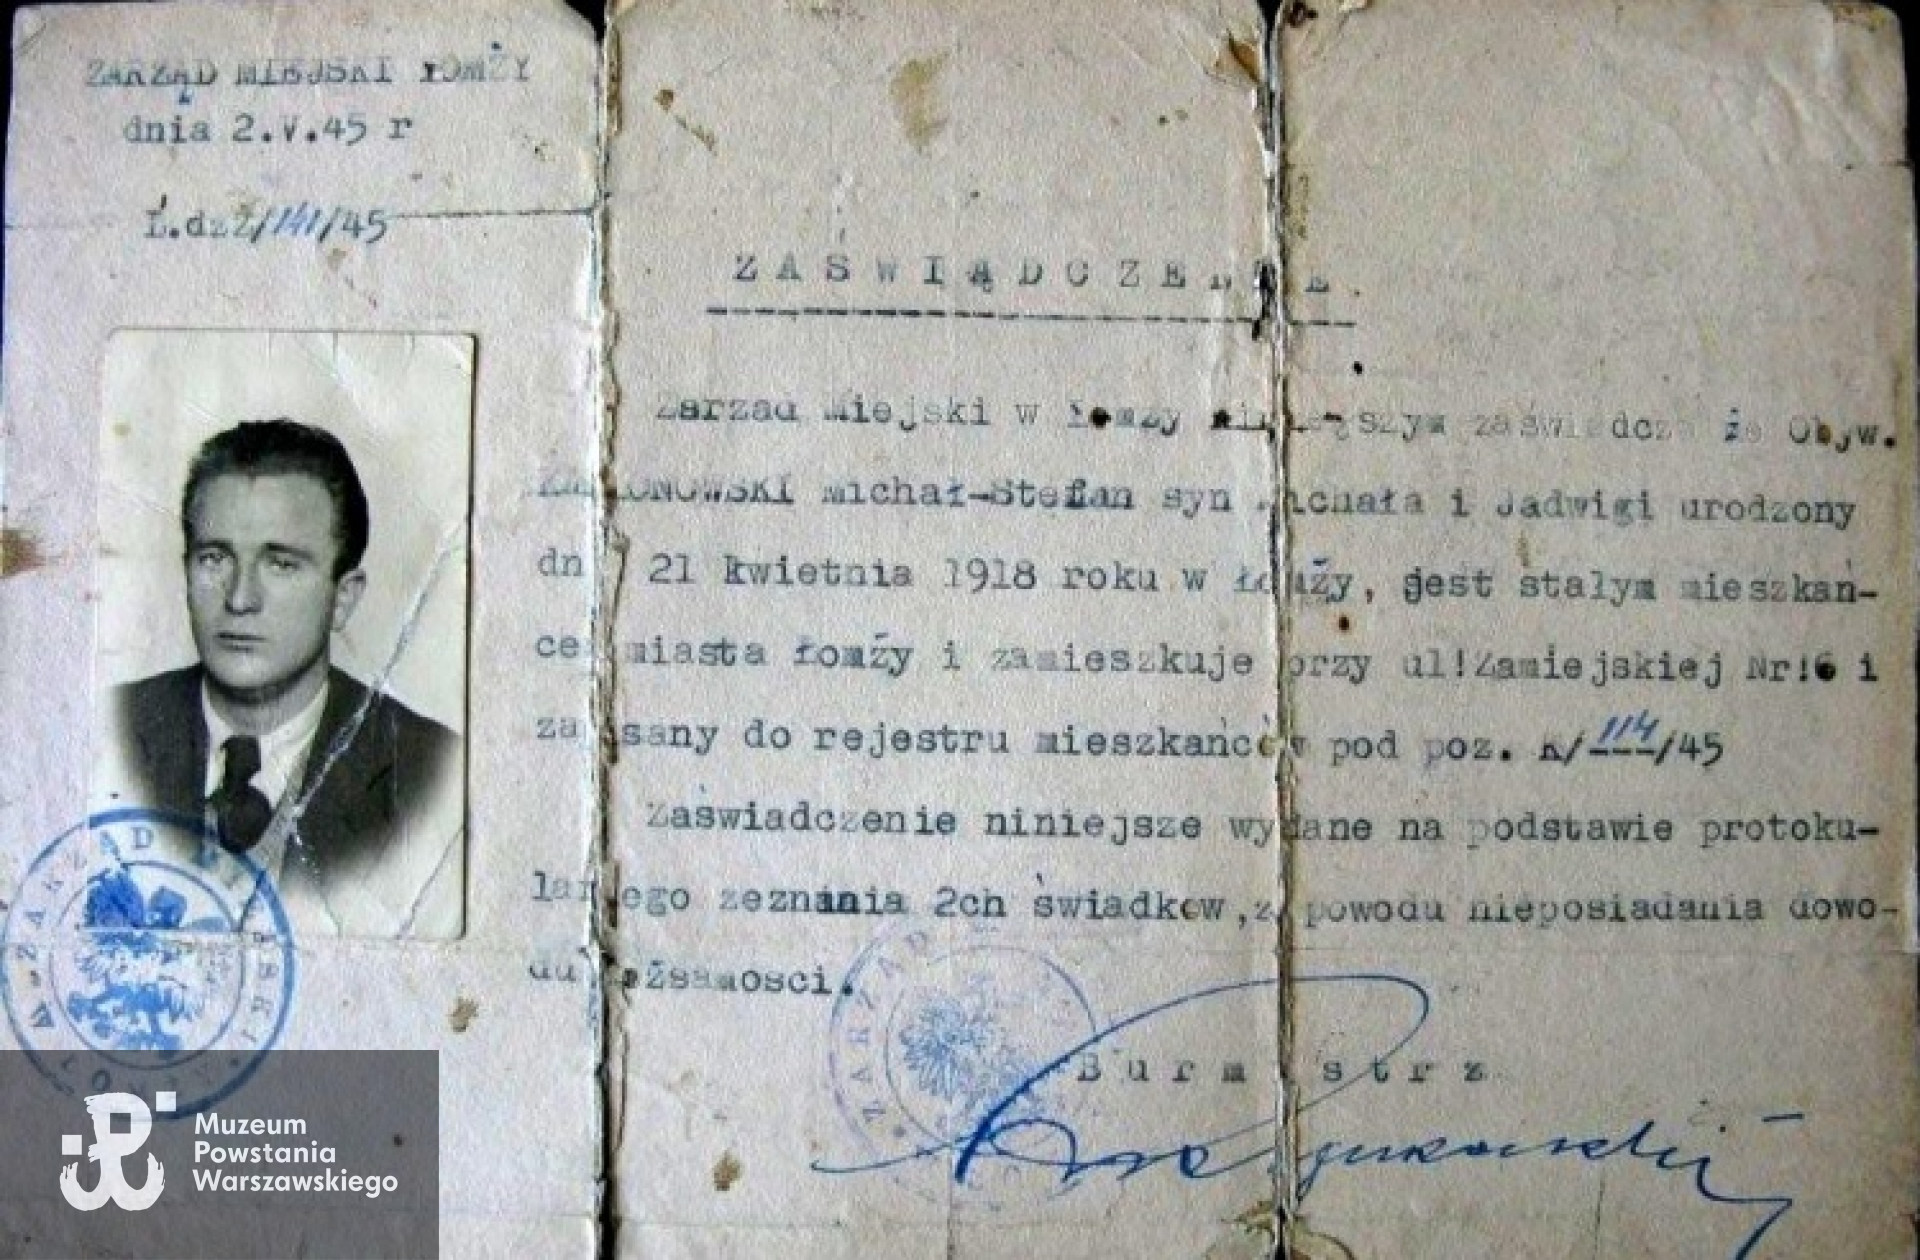 ZARZĄD MIEJSKI ŁOMŻY
dnia 2.V.45 r
L.dzż/141/45
ZAŚWIADCZENIE.
Zarząd Miejski w Łomży niniejszym zaświadcza że Obyw.
Michał-Stefan syn Michała i Jadwigi urodzony
dnia 21 kwietnia 1918 roku w Łomży, jest stałym mieszkań-
cem miasta Łomży i zamieszkuje przy ul!Zamiejskiej Nr!6 i
zapisany do rejestru mieszkańców pod poz. K/114/45
Zaświadczenie niniejsze wydane na podstawie protoku-
larnego zeznania 2ch świadków,z powodu nieposiadania dowo-
du tożsamości.
ZARZĄD
ZARZĄD
Burmistrz
Muzeum
Powstania
Warszawskiego